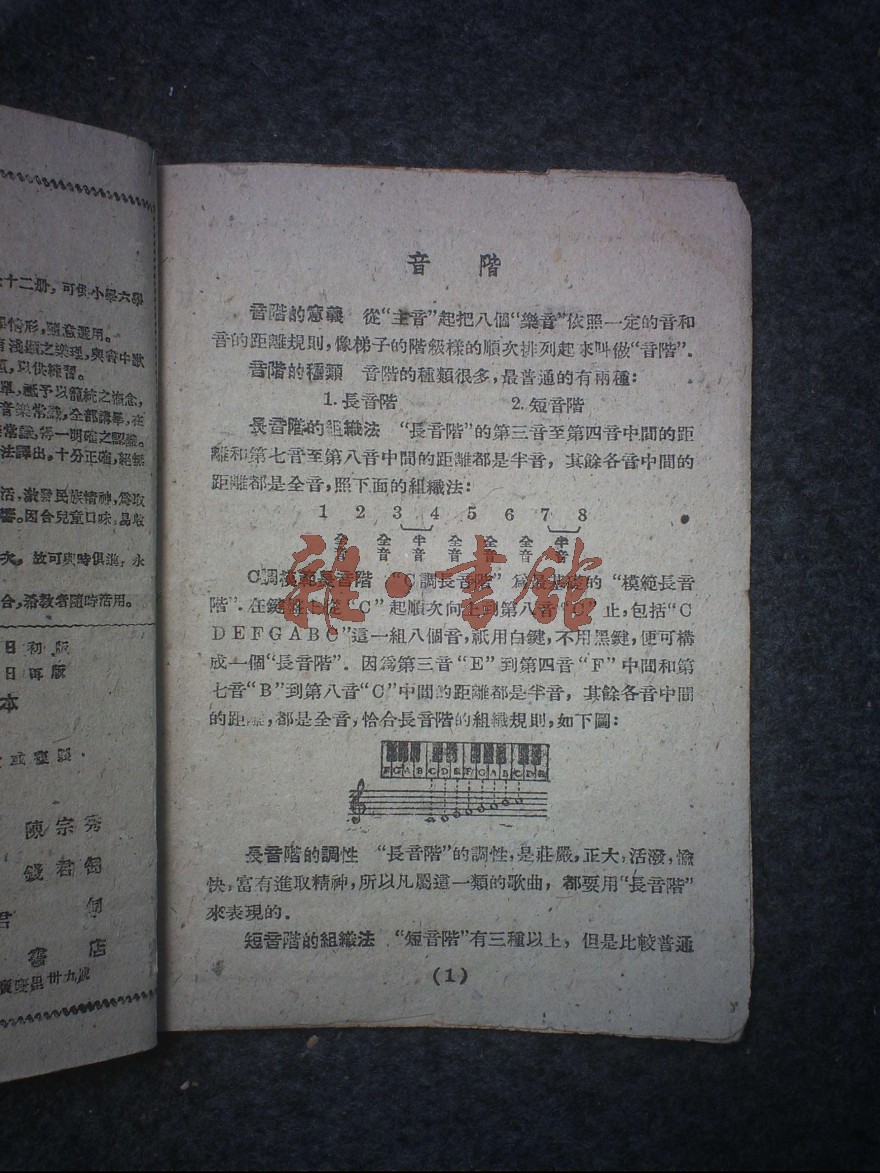 十二册，可供小學六學
情形，隨意選用。
淺顯之樂理，與書中歌
以供練習。
予以籠統之概念，
音樂常識，全部講畢，在
常識，得一明確之認識。
法譯出，十分正確，絕無
活，激發民族精神，爲取
因合兒童口味，易收
故可與時俱進，永
合，希教者隨時活用。
日初版
日再版
本
陳宗秀
錢君匋
君匋
書店
慶里卅九號
音階
音階的意義 從“主音”起把八個“樂音”依照一定的音和
音的距離規則，像梯子的階級樣的順次排列起來叫做“音階”．
音階的種類 音階的種類很多，最普通的有兩種：
1．長音階 2．短音階
長音階的組織法 “長音階”的第三音至第四音中間的距
離和第七音至第八音中間的距離都是半音，其餘各音中間的
距離都是全音，照下面的組織法：
1 2 3 4 5 6 7 8
全音 全音 半音 全音 全音 全音 半音
C調模範長音階 “C調長音階”爲最基礎的“模範長音
階”．在鍵盤上從“C”起順次向上到第八音“C”止，包括“C
DEFGABC”這一組八個音，祇用白鍵，不用黑鍵，便可構
成一個“長音階”．因爲第三音“E”到第四音“F”中間和第
七音“B”到第八音“C”中間的距離都是半音，其餘各音中間
的距離，都是全音，恰合長音階的組織規則，如下圖：
FGABCDEFGABCDE
長音階的調性 “長音階”的調性，是莊嚴，正大，活潑，愉
快，富有進取精神，所以凡屬這一類的歌曲，都要用“長音階”
來表現的．
短音階的組織法 “短音階”有三種以上，但是比較普通
(1)
雜·書館